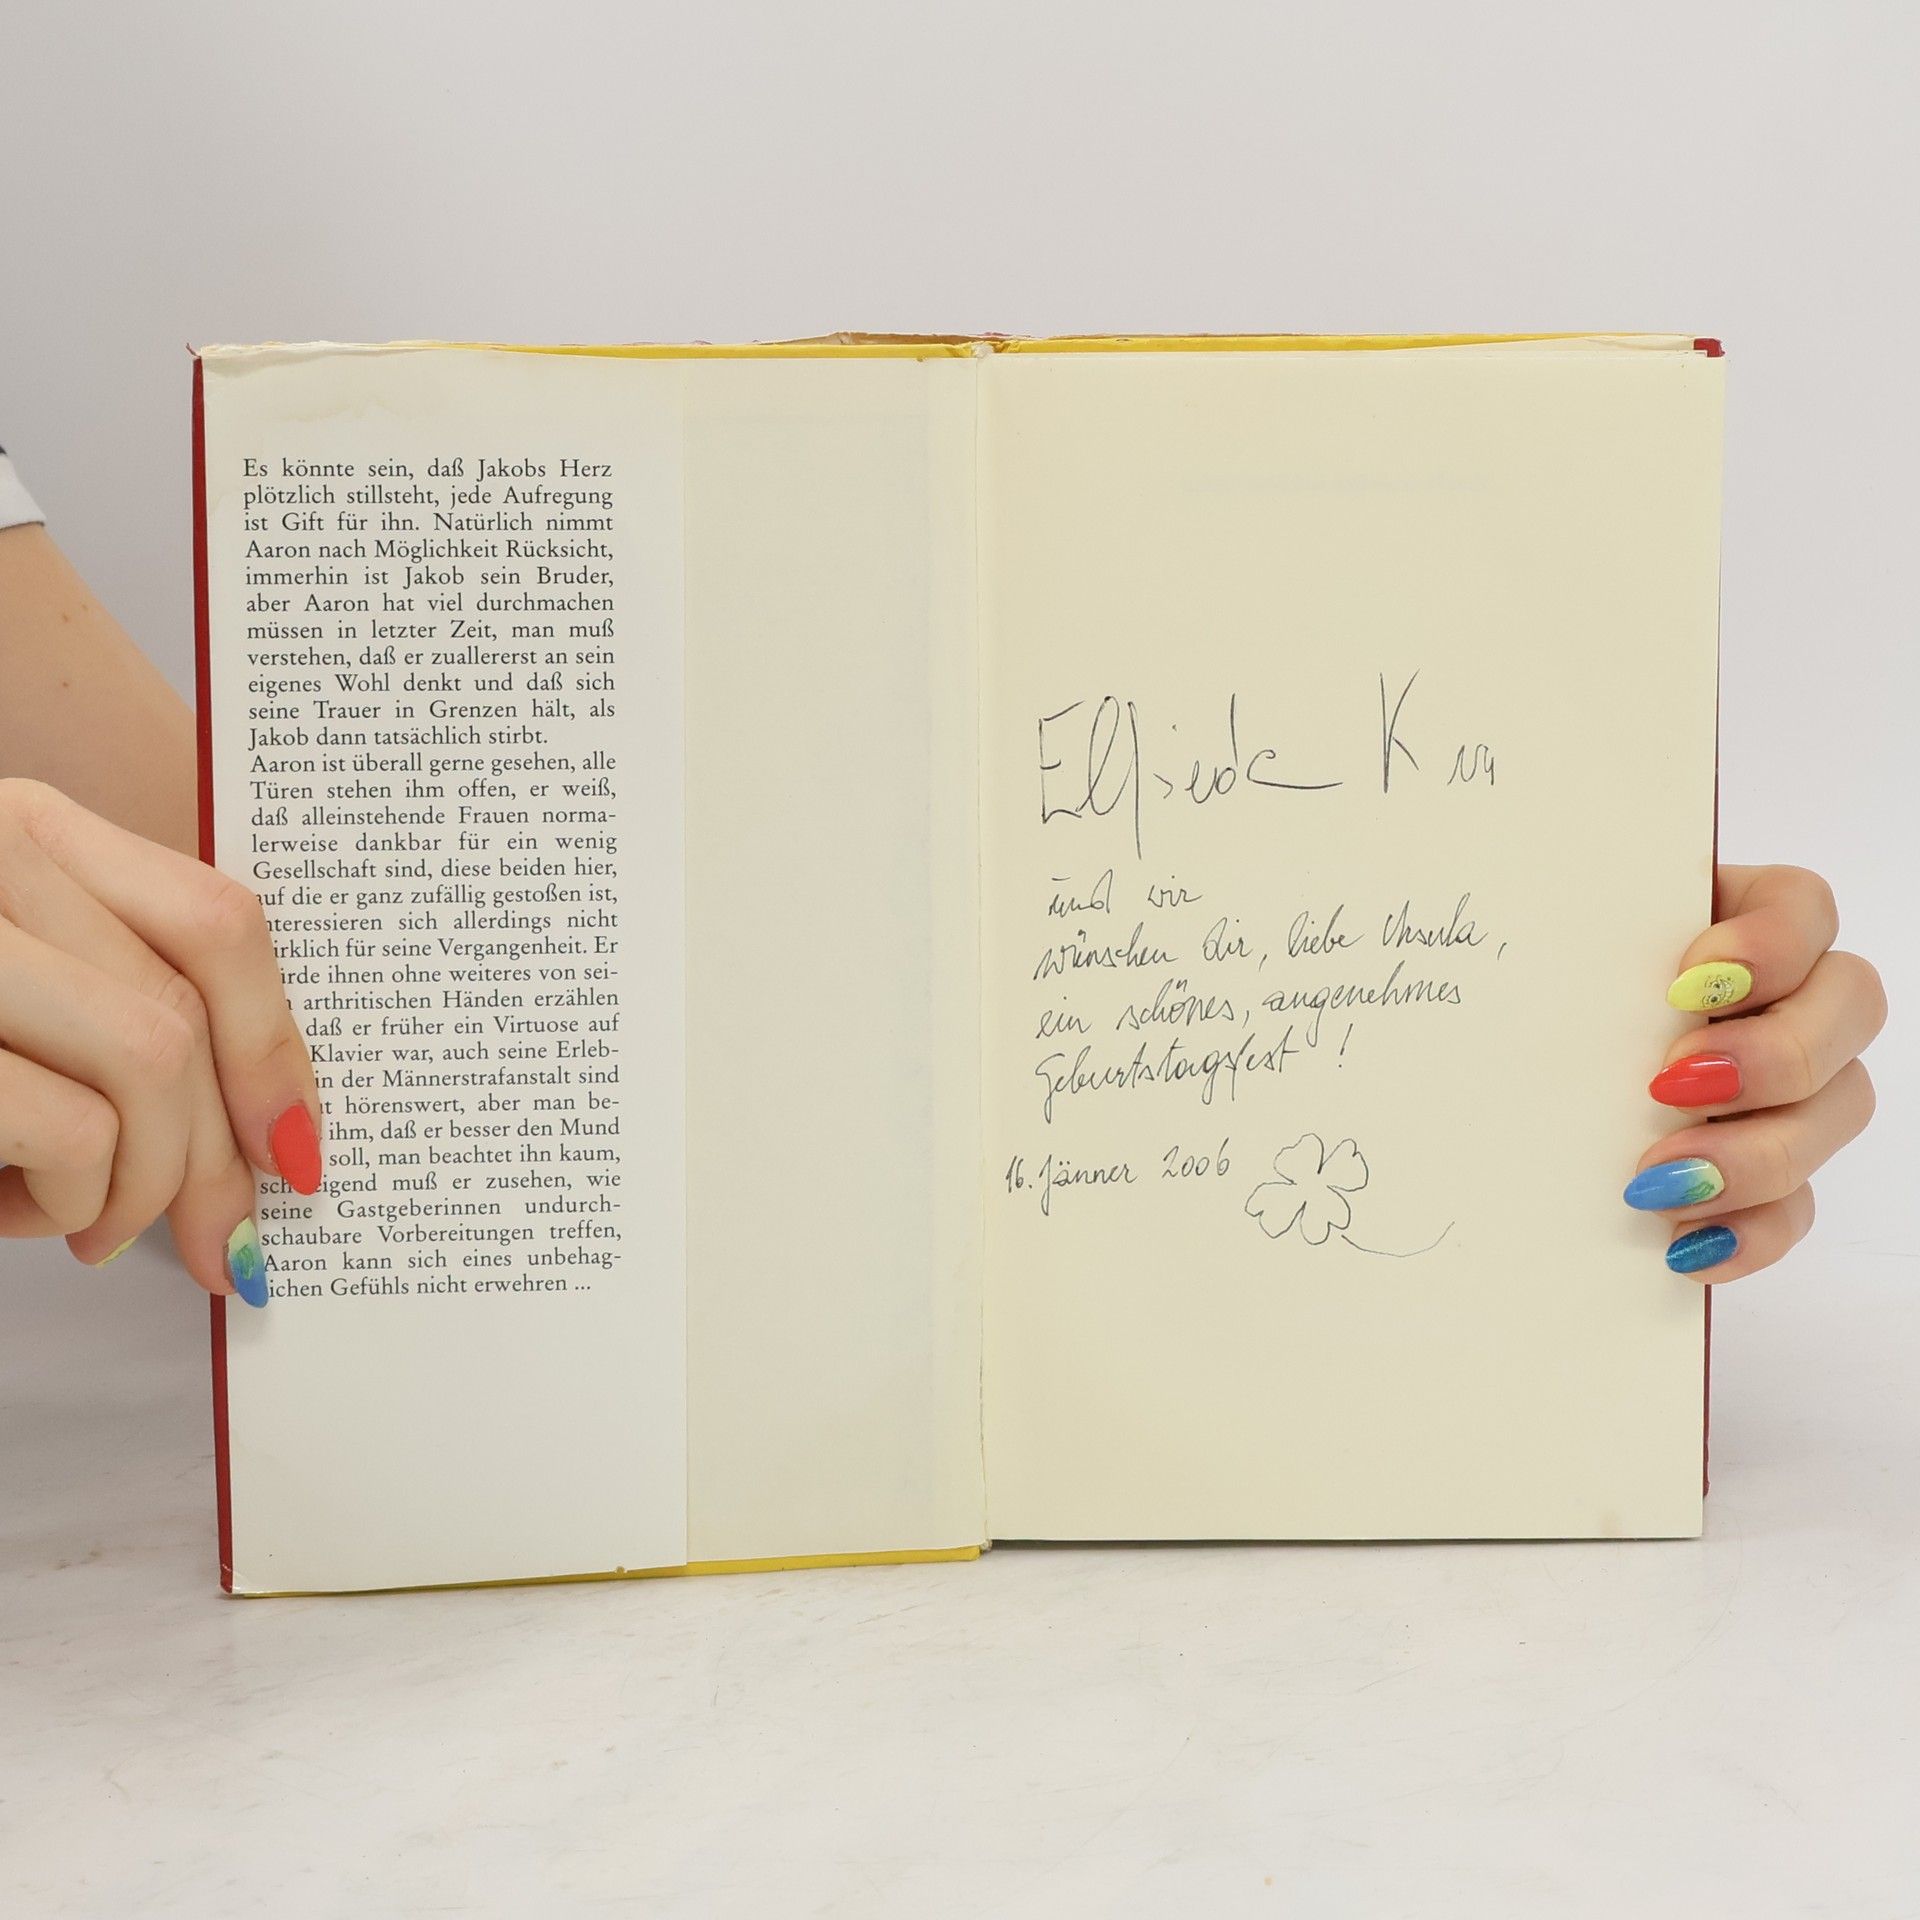 Es könnte sein, daß Jakobs Herz
plötzlich stillsteht, jede Aufregung
ist Gift für ihn. Natürlich nimmt
Aaron nach Möglichkeit Rücksicht,
immerhin ist Jakob sein Bruder,
aber Aaron hat viel durchmachen
müssen in letzter Zeit, man muß
verstehen, daß er zuallererst an sein
eigenes Wohl denkt und daß sich
seine Trauer in Grenzen hält, als
Jakob dann tatsächlich stirbt.
Aaron ist überall gerne gesehen, alle
Türen stehen ihm offen, er weiß,
daß alleinstehende Frauen norma-
lerweise dankbar für ein wenig
Gesellschaft sind, diese beiden hier,
auf die er ganz zufällig gestoßen ist,
nteressieren sich allerdings nicht
irklich für seine Vergangenheit. Er
ürde ihnen ohne weiteres von sei-
arthritischen Händen erzählen
daß er früher ein Virtuose auf
Klavier war, auch seine Erleb-
in der Männerstrafanstalt sind
hörenswert, aber man be-
ihm, daß er besser den Mund
soll, man beachtet ihn kaum,
sch eigend muß er zusehen, wie
seine Gastgeberinnen undurch-
schaubare Vorbereitungen treffen,
Aaron kann sich eines unbehag-
ichen Gefühls nicht erwehren ...
Elfriede K
und wir
wünschen dir, liebe Ursula,
ein schönes, angenehmes
Geburtstagsfest!
16. Jänner 2006